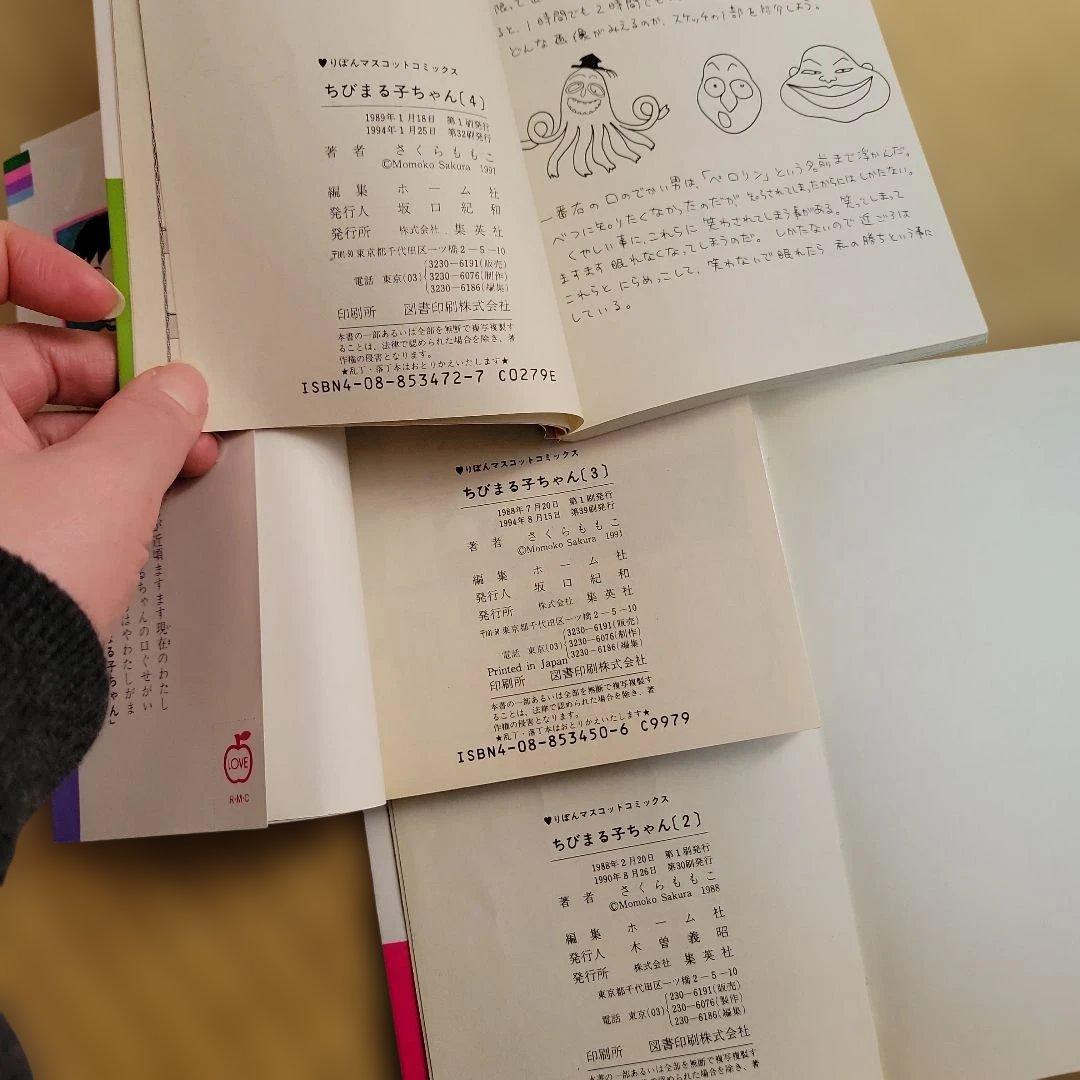 ♥りぼんマスコットコミックス
ちびまる子ちゃん〔4〕
1989年1月18日 第1刷発行
1994年1月25日 第32刷発行
著者 さくらももこ
©Momoko Sakura 1991
編集 ホーム社
発行人 坂口紀和
発行所 株式会社 集英社
東京都千代田区一ツ橋2-5-10
電話 東京(03) 3230-6191(販売)
3230-6076(制作)
3230-6186(編集)
印刷所 図書印刷株式会社
本書の一部あるいは全部を無断で複写複製す
ることは、法律で認められた場合を除き、著
作権の侵害となります。
★乱丁・落丁本はおとりかえいたします★
ISBN4-08-853472-7 C0279E
ると、1時間でも2時間でも
どんな画像がみえるのか、スケッチの1部を紹介しよう。
一番右の口のでかい男は、「ペロリン」という名前まで浮かんだ。
べつに知りたくなかったのだが 知らされてしまったからには しかたない。
くやしい事に、これらに 笑わされてしまう事がある。笑ってしまって
ますます眠れなくなってしまうのだ。 しかたないので 近ごろは
これらと にらめっこして、笑わないで眠れたら 私の勝ちという事に
している。
♥りぼんマスコットコミックス
ちびまる子ちゃん〔3〕
1988年7月20日 第1刷発行
1994年8月15日 第39刷発行
著者 さくらももこ
©Momoko Sakura 1991
編集 ホーム社
発行人 坂口紀和
発行所 株式会社 集英社
東京都千代田区一ツ橋2-5-10
電話 東京(03) 3230-6191(販売)
3230-6076(制作)
3230-6186(編集)
Printed in Japan
印刷所 図書印刷株式会社
本書の一部あるいは全部を無断で複写複製す
ることは、法律で認められた場合を除き、著
作権の侵害となります。
★乱丁・落丁本はおとりかえいたします★
ISBN4-08-853450-6 C9979
近頃ますます現在のわたし
ちゃんの口ぐせがい
はやわたしがま
る子ちゃん」
LOVE
R・M・C
♥りぼんマスコットコミックス
ちびまる子ちゃん〔2〕
1988年2月20日 第1刷発行
1990年8月26日 第30刷発行
著者 さくらももこ
©Momoko Sakura 1988
編集 ホーム社
発行人 木曽義昭
発行所 株式会社 集英社
東京都千代田区一ツ橋2-5-10
電話 東京(03) 230-6191(販売)
230-6076(製作)
230-6186(編集)
印刷所 図書印刷株式会社
本書の一部あるいは全部を無断で複写複製す